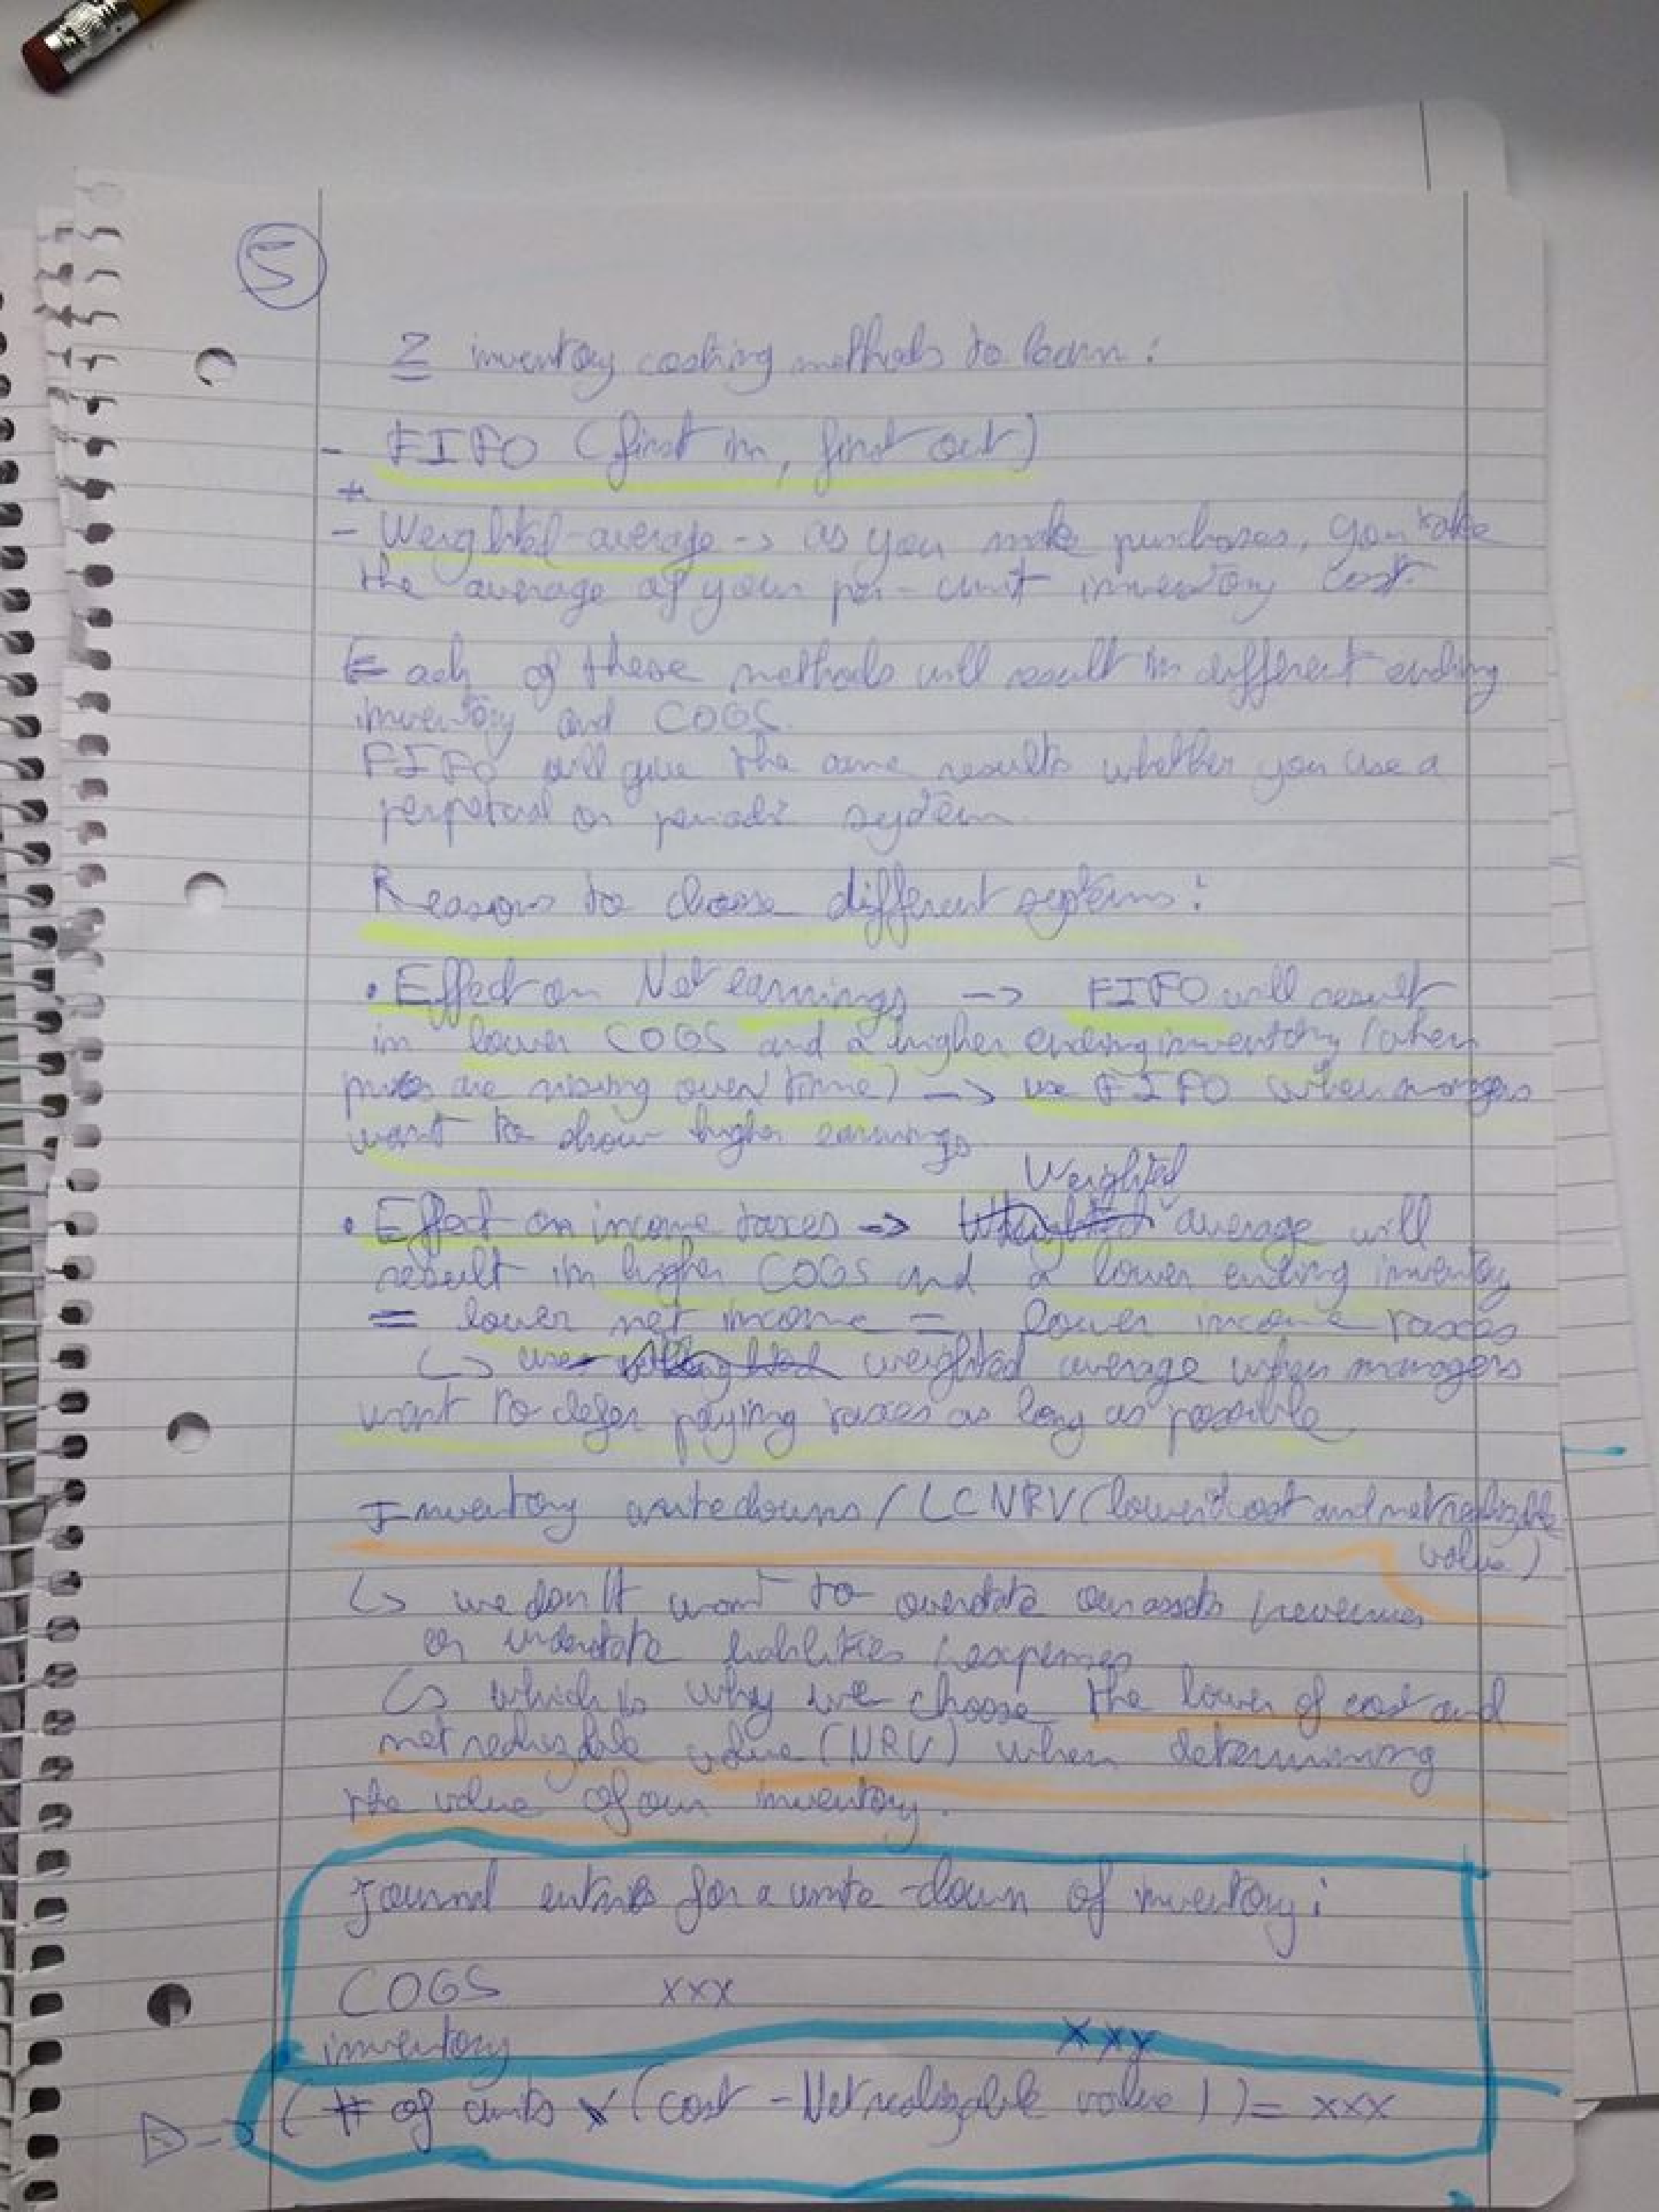 5
2 inventory costing methods to learn:
- FIFO (first in, first out)
+
- Weighted-average -> as you make purchases, you take
the average of your per-unit inventory cost.
Each of these methods will result in different ending
inventory and COGS.
FIFO will give the same results whether you use a
perpetual or periodic system.
Reasons to choose different systems:
• Effect on Net earnings -> FIFO will result
in lower COGS and a higher ending inventory (when
prices are rising over time) -> use FIFO when managers
want to show higher earnings.
Weighted
• Effect on income taxes -> average will
result in higher COGS and a lower ending inventory
= lower net income = lower income taxes
↳ use weighted average when managers
want to defer paying taxes as long as possible
Inventory writedowns / LCNRV (lower cost and net realizable
value)
↳ we don't want to overstate our assets / revenues
or understate liabilities / expenses
↳ which is why we choose the lower of cost and
net realizable value (NRV) when determining
the value of our inventory.
Journal entries for a write-down of inventory:
COGS xxx
inventory xxx
-> (# of units x (cost - Net realizable value)) = xxx